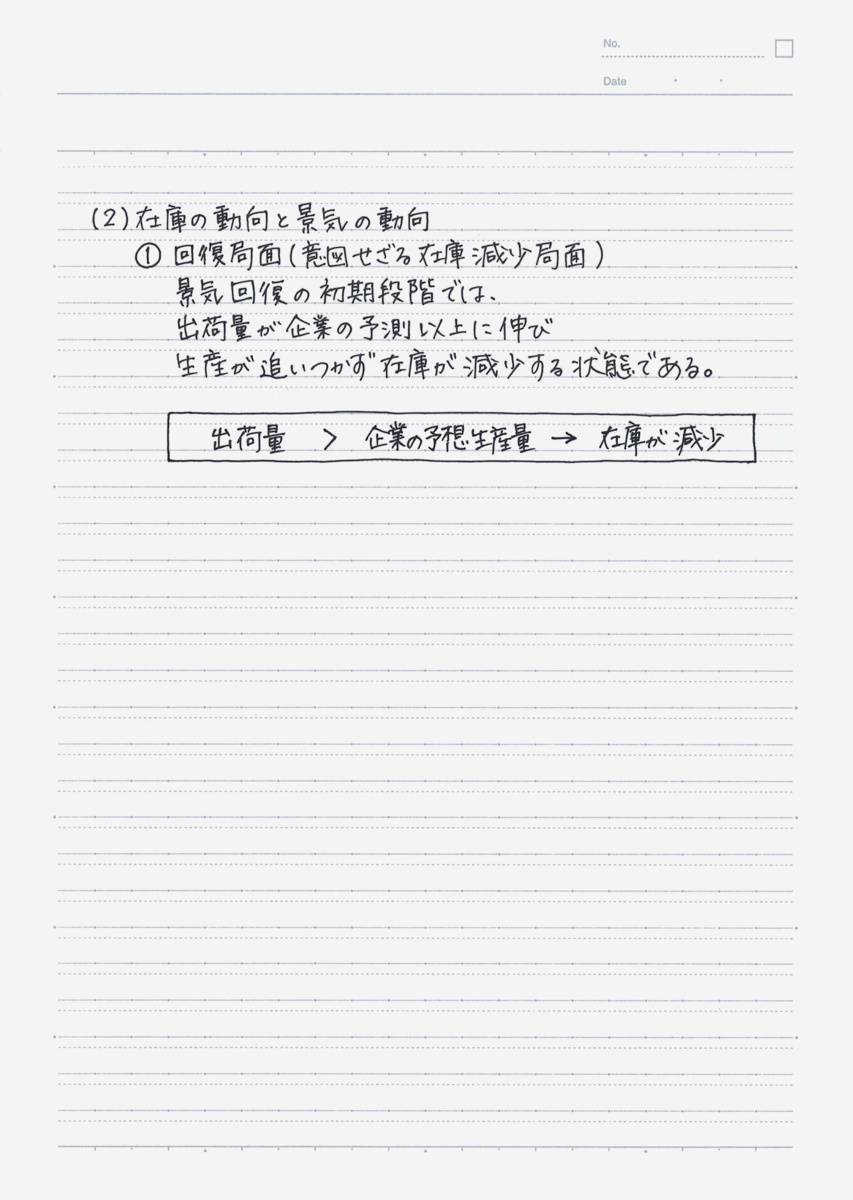 No.
Date
(2)在庫の動向と景気の動向
① 回復局面(意図せざる在庫減少局面)
景気回復の初期段階では、
出荷量が企業の予測以上に伸び
生産が追いつかず在庫が減少する状態である。
出荷量 > 企業の予想生産量 → 在庫が減少